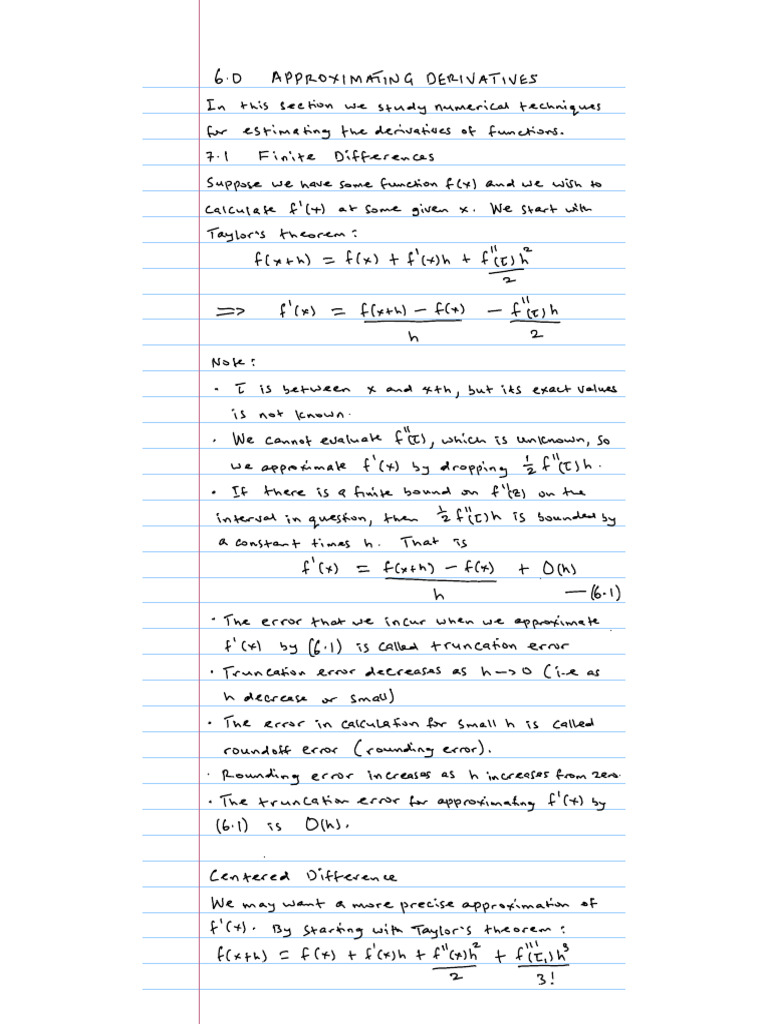 6.0 APPROXIMATING DERIVATIVES
In this section we study numerical techniques
for estimating the derivatives of functions.
7.1 Finite Differences
Suppose we have some function f(x) and we wish to
calculate f'(x) at some given x. We start with
Taylor's theorem:
f(x+h) = f(x) + f'(x)h + f''(τ)h²/2
=> f'(x) = (f(x+h) - f(x))/h - f''(τ)h/2
Note:
· τ is between x and x+h, but its exact values
is not known.
· We cannot evaluate f''(τ), which is unknown, so
we approximate f'(x) by dropping ½ f''(τ)h.
· If there is a finite bound on f''(z) on the
interval in question, then ½ f''(τ)h is bounded by
a constant times h. That is
f'(x) = (f(x+h) - f(x))/h + O(h) —(6.1)
· The error that we incur when we approximate
f'(x) by (6.1) is called truncation error
· Truncation error decreases as h->0 (i.e as
h decrease or small)
· The error in calculation for small h is called
roundoff error (rounding error).
· Rounding error increases as h increases from zero.
· The truncation error for approximating f'(x) by
(6.1) is O(h).
Centered Difference
We may want a more precise approximation of
f'(x). By starting with Taylor's theorem:
f(x+h) = f(x) + f'(x)h + f''(x)h²/2 + f'''(τ₁)h³/3!